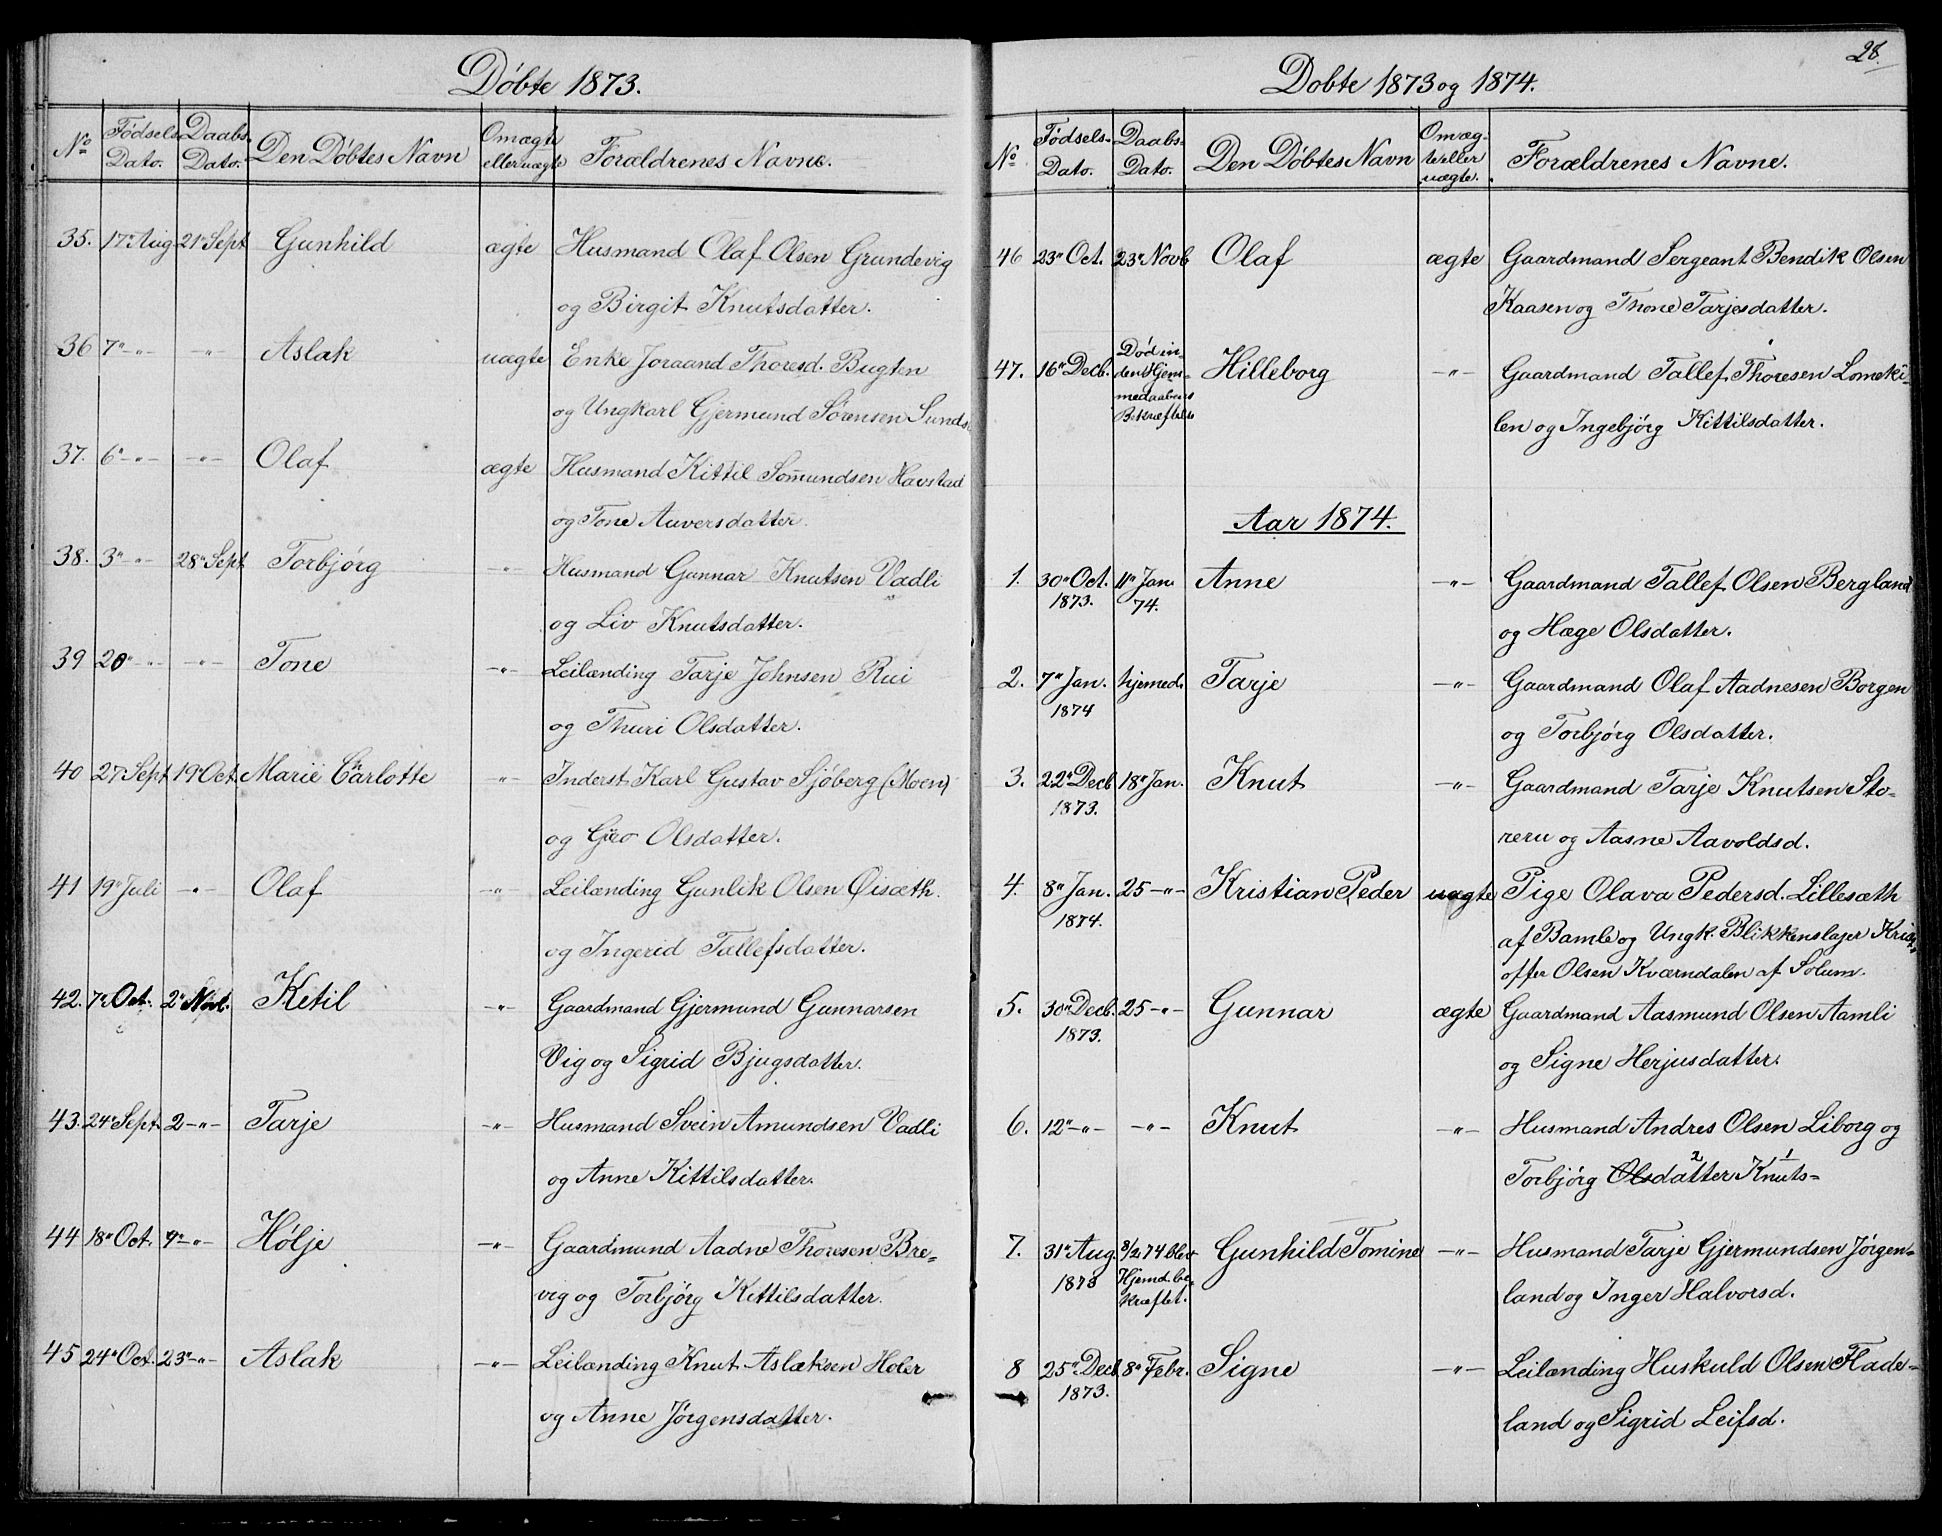 Döbte 1873.
No Fødsels Dato. Daabs- Dato. Den Döbtes Navn Omægte eller uægte Forældrenes Navne.
35. 17" Aug 21" Sept Gunhild ægte Husmand Olaf Olsen Grundevig
og Birgit Knutsdatter.
36 7" -"- -"- Aslak uægte Enke Joraand Thoresd. Bugten
og Ungkarl Gjermund Sörensen Sunds
37. 6" -"- -"- Olaf ægte Husmand Kittil Somundsen Havstad
og Tone Auversdatter.
38. 3" -"- 28" Sept Torbjörg -"- Husmand Gunnar Knutsen Vadli
og Liv Knutsdatter.
39 20" -"- -"- Tone -"- Leilænding Tarje Johnsen Rui
og Thuri Olsdatter.
40 27 Sept 19" Oct Marie Carlotte -"- Inderst Karl Gustav Sjöberg (Moen)
og Gro Olsdatter.
41 19" Juli -"- Olaf -"- Leilænding Gunlik Olsen Öisæth.
og Ingerid Tallefsdatter.
42. 7" Oct. 2" Novb. Ketil -"- Gaardmand Gjermund Gunnarsen
Vig og Sigrid Bjugsdatter.
43. 24" Sept. 2 -"- Tarje -"- Husmand Svein Amundsen Vadli
og Anne Kittilsdatter.
44 18" Oct. 9" -"- Hölje -"- Gaardmand Aadne Thoresen Bre-
vig og Torbjörg Kittilsdatter.
45 24" Oct. 23" -"- Aslak -"- Leilænding Knut Aslaksen Holer
og Anne Jörgensdatter.
28.
Dobte 1873 og 1874.
No Fødsels- Dato. Daabs- Dato. Den Döbtes Navn Omæg- te eller uægte. Forældrenes Navne.
46 23" Oct. 23" Novb Olaf ægte Gaardmand Sergeant Bendik Olsen
Kaasen og Thone Tarjesdatter.
47. 16" Decb. Död in- den Hjem- medaabens Bekræftelse Hilleborg -"- Gaardmand Tallef Thoresen Lomeki-
len og Ingebjörg Kittilsdatter.
Aar 1874.
1. 30" Oct. 1873. 11" Jan. 74. Anne -"- Gaardmand Tallef Olsen Bergland
og Hæge Olsdatter.
2. 7" Jan. 1874 hjemed. Tarje -"- Gaardmand Olaf Aadnesen Borgen
og Torbjörg Olsdatter.
3. 22" Decb 1873. 18" Jan. Knut -"- Gaardmand Tarje Knutsen Sto-
reru og Aasne Aavoldsd.
4. 8" Jan. 1874. 25 -"- Kristian Peder uægte Pige Olava Pedersd. Lillesæth
af Bamble og Ungk. Blikkenslager Krist-
offer Olsen Kværndalen af Solum.
5. 30" Decb. 1873. 25 -"- Gunnar ægte Gaardmand Aasmund Olsen Aamli
og Signe Herjusdatter.
6. 12" -"- -"- Knut -"- Husmand Andres Olsen Liborg og
Torbjörg Olsdatter 2 Knuts- 1
7. 31" Aug. 1873 3/2 74 blev Hjemd. be- kræftet. Gunhild Tomine -"- Husmand Tarje Gjermundsen Jörgen-
land og Inger Halvorsd.
8 25" Decb. 1873. 8" Febr. Signe -"- Leilænding Huskuld Olsen Flade-
land og Sigrid Leifsd.